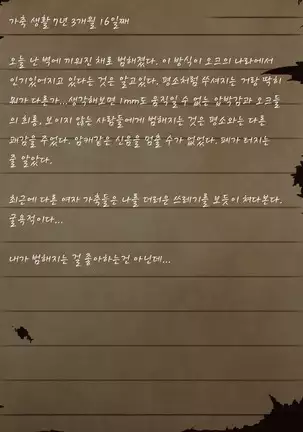 가축 생활 7년 3개월 16일째
오늘 난 벽에 끼워진 채로 범해졌다. 이 방식이 오크의 나라에서
인기있어지고 있다는 것은 알고있다. 평소처럼 쑤셔지는 거랑 딱히
뭐가 다른가...생각해보면 1mm도 움직일 수 없는 압박감과 오크들
의 희롱, 보이지 않는 사람들에게 범해지는 것은 평소와는 다른
쾌감을 주었다. 암캐같은 신음을 멈출 수가 없었다. 폐가 터지는
줄 알았다.
최근에 다른 여자 가축들은 나를 더러운 쓰레기를 보듯이 쳐다본다.
굴욕적이다...
내가 범해지는 걸 좋아하는건 아닌데...